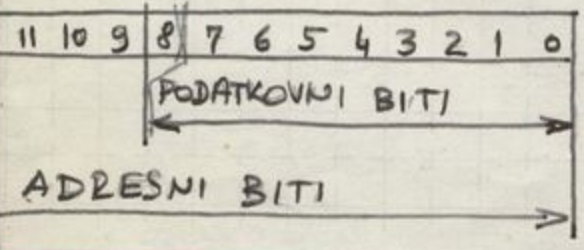 11 10 9 8 7 6 5 4 3 2 1 0
PODATKOVNI BITI
ADRESNI BITI